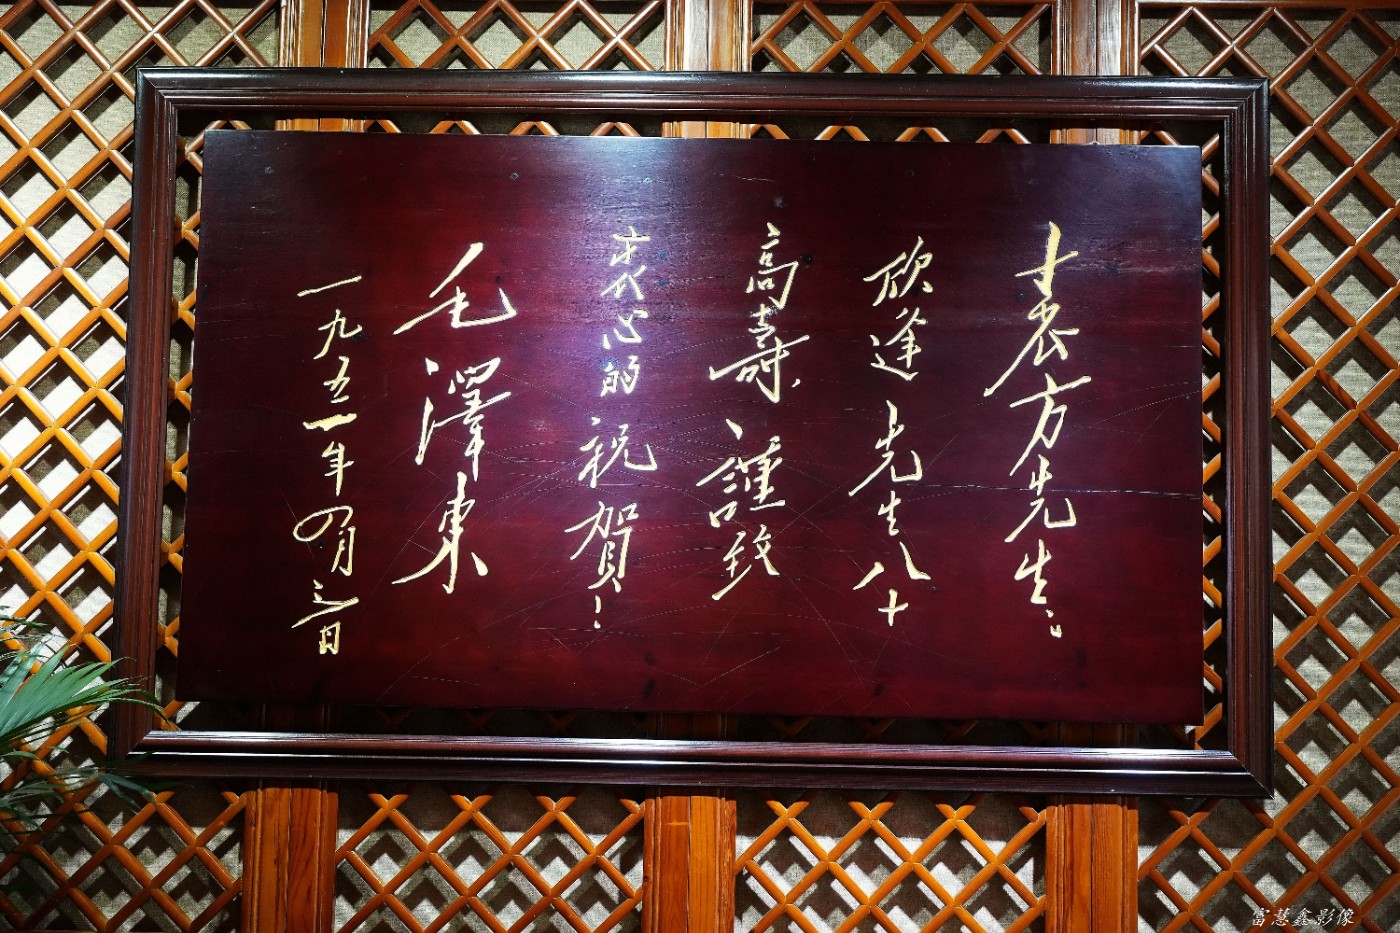 表方先生：
欣逢先生八十
高壽，謹致
衷心的祝賀！
毛澤東
一九五一年四月二日
富慧鑫影像